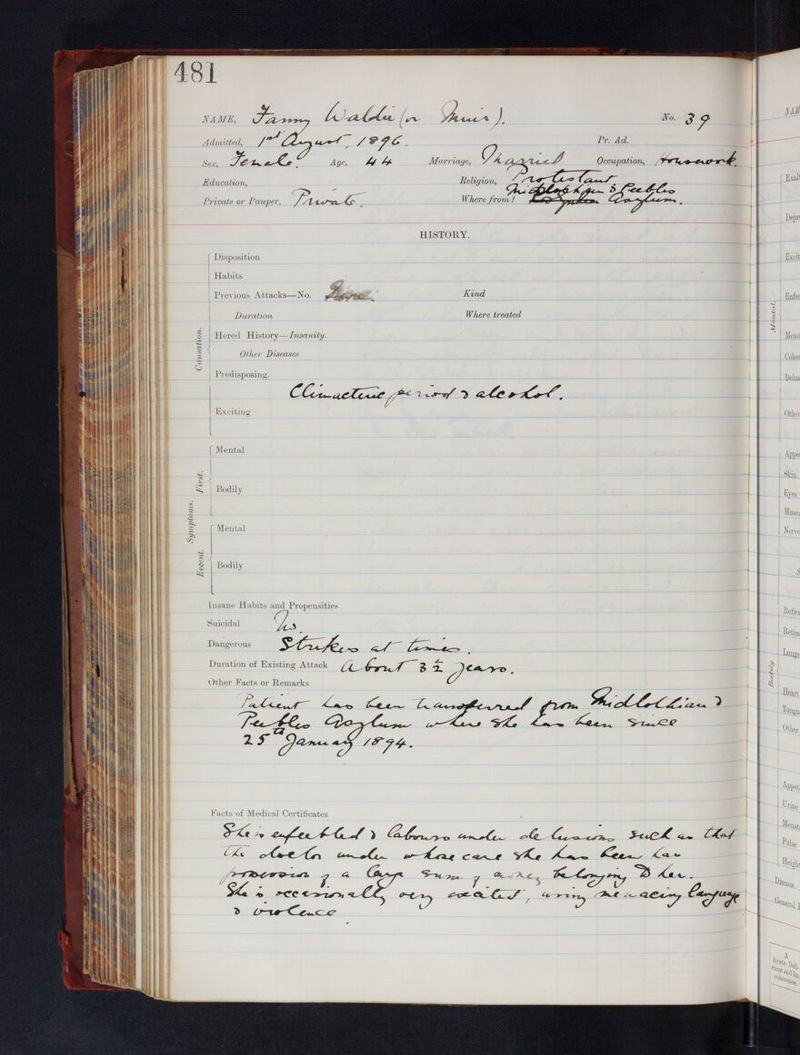 481
NAME, Fanny Waldie (or Muir). No. 39
Admitted, 1st August, 1896. Pr. Ad.
Sex, Female. Age, 44 Marriage, Married Occupation, Housework.
Education, Religion, Protestant
Private or Pauper, Private. Where from? Midlothian & Peebles Asylum.
HISTORY.
Disposition
Habits
Previous Attacks—No. None. Kind
Duration Where treated
Hered History—Insanity.
Other Diseases
Causation.
Predisposing.
Climacteric period & alcohol.
Exciting
Mental
First.
Bodily
Symptoms.
Mental
Recent.
Bodily
Insane Habits and Propensities
Suicidal No.
Dangerous Strikes at times.
Duration of Existing Attack About 3½ years.
Other Facts or Remarks
Patient has been transferred from Midlothian &
Peebles Asylum where she has been since
25th January 1894.
Facts of Medical Certificates
She is enfeebled & labours under delusions such as that
the doctor under whose care she has been has
possession of a large sum of money belonging to her.
She is occasionally very excited, using menacing language
& violence.
Mental.
Bodily
Skin
Eyes
Lungs
Heart
Other
Urine
Pulse
Disease.